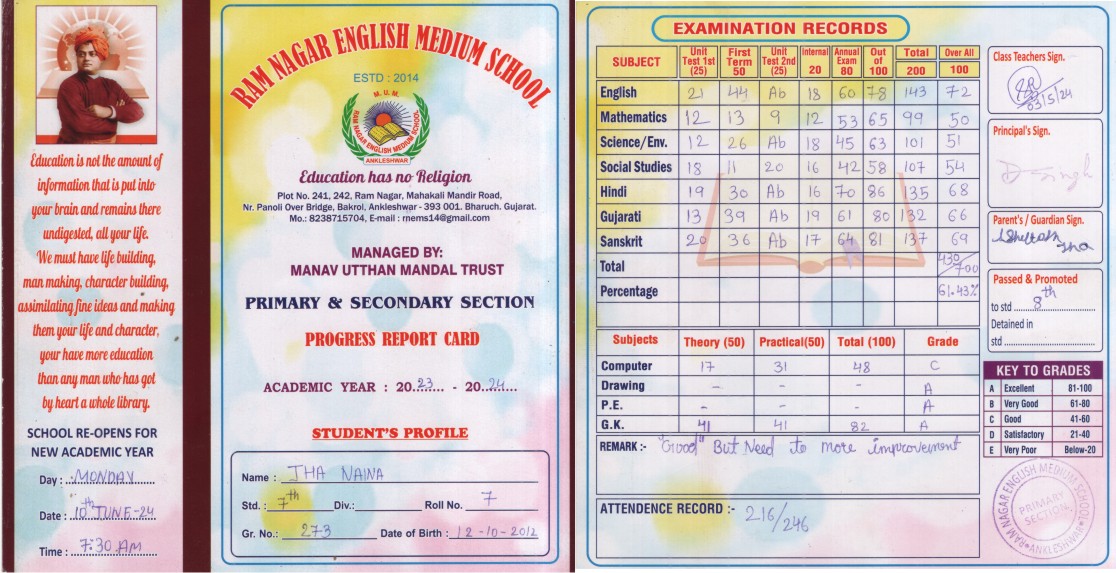 Education is not the amount of
information that is put into
your brain and remains there
undigested, all your life.
We must have life building,
man making, character building,
assimilating fine ideas and making
them your life and character,
your have more education
than any man who has got
by heart a whole library.
SCHOOL RE-OPENS FOR
NEW ACADEMIC YEAR
Day : MONDAY
Date : 10th JUNE-24
Time : 7:30 AM
RAM NAGAR ENGLISH MEDIUM SCHOOL
ESTD : 2014
M. U. M.
RAM NAGAR ENGLISH MEDIUM SCHOOL
ANKLESHWAR
Education has no Religion
Plot No. 241, 242, Ram Nagar, Mahakali Mandir Road,
Nr. Panoli Over Bridge, Bakrol, Ankleshwar - 393 001. Bharuch. Gujarat.
Mo.: 8238715704, E-mail : rnems14@gmail.com
MANAGED BY:
MANAV UTTHAN MANDAL TRUST
PRIMARY & SECONDARY SECTION
PROGRESS REPORT CARD
ACADEMIC YEAR : 2023 - 2024
STUDENT'S PROFILE
Name : JHA NAINA
Std. : 7th Div.: Roll No. 7
Gr. No.: 273 Date of Birth : 12-10-2012
EXAMINATION RECORDS
SUBJECT Unit Test 1st (25) First Term 50 Unit Test 2nd (25) Internal 20 Annual Exam 80 Out of 100 Total 200 Over All 100
English 21 44 Ab 18 60 78 143 72
Mathematics 12 13 9 12 53 65 99 50
Science/Env. 12 26 Ab 18 45 63 101 51
Social Studies 18 11 20 16 42 58 107 54
Hindi 19 30 Ab 16 70 86 135 68
Gujarati 13 39 Ab 19 61 80 132 66
Sanskrit 20 36 Ab 17 64 81 137 69
Total 430/700
Percentage 61.43%
Subjects Theory (50) Practical(50) Total (100) Grade
Computer 17 31 48 C
Drawing - - A
P.E. - - A
G.K. 41 41 82 A
REMARK :- "Good" But Need to more improvement
ATTENDENCE RECORD :- 216/246
Class Teachers Sign.
03/5/24
Principal's Sign.
D. Singh
Parent's / Guardian Sign.
Jha
Passed & Promoted
to std 8th
Detained in
std
KEY TO GRADES
A Excellent 81-100
B Very Good 61-80
C Good 41-60
D Satisfactory 21-40
E Very Poor Below-20
RAM NAGAR ENGLISH MEDIUM SCHOOL
PRIMARY
SECTION
ANKLESHWAR